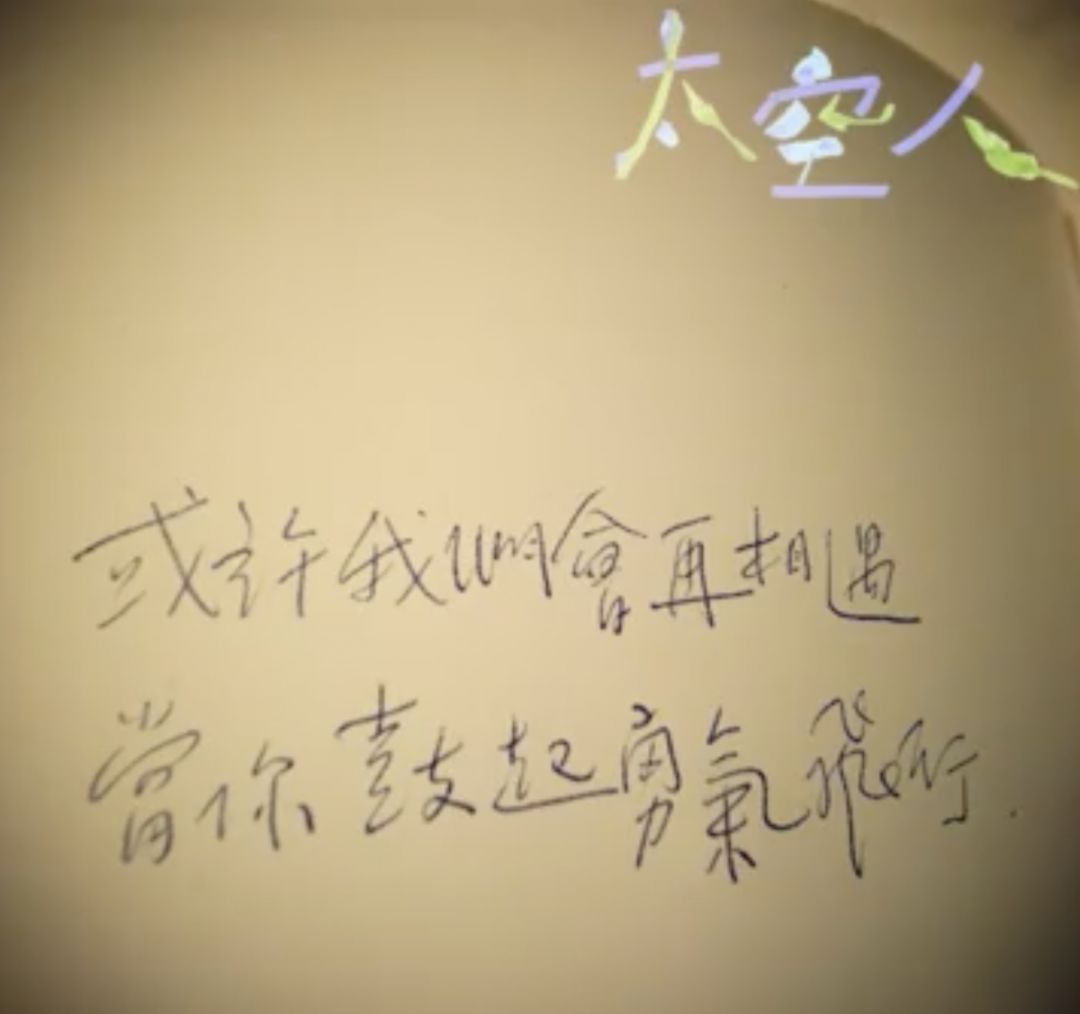 太空人
或許我們會再相遇
當你鼓起勇氣飛行.